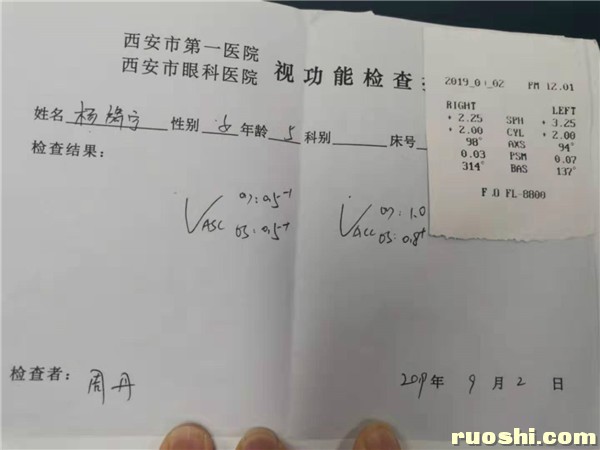 西安市第一医院
西安市眼科医院 视功能检查
姓名 杨 宁 性别 女 年龄 5 科别 床号
检查结果:
VASC OD: 0.5-1 OS: 0.5-1
VACC OD: 1.0 OS: 0.8+
检查者: 周丹
2019年 9 月 2 日
2019_0 _02 PM 12.01
RIGHT LEFT
+ 2.25 SPH + 3.25
+ 2.00 CYL + 2.00
98° AXS 94°
0.03 PSM 0.07
314° BAS 137°
FL-8800
ruoshi.com